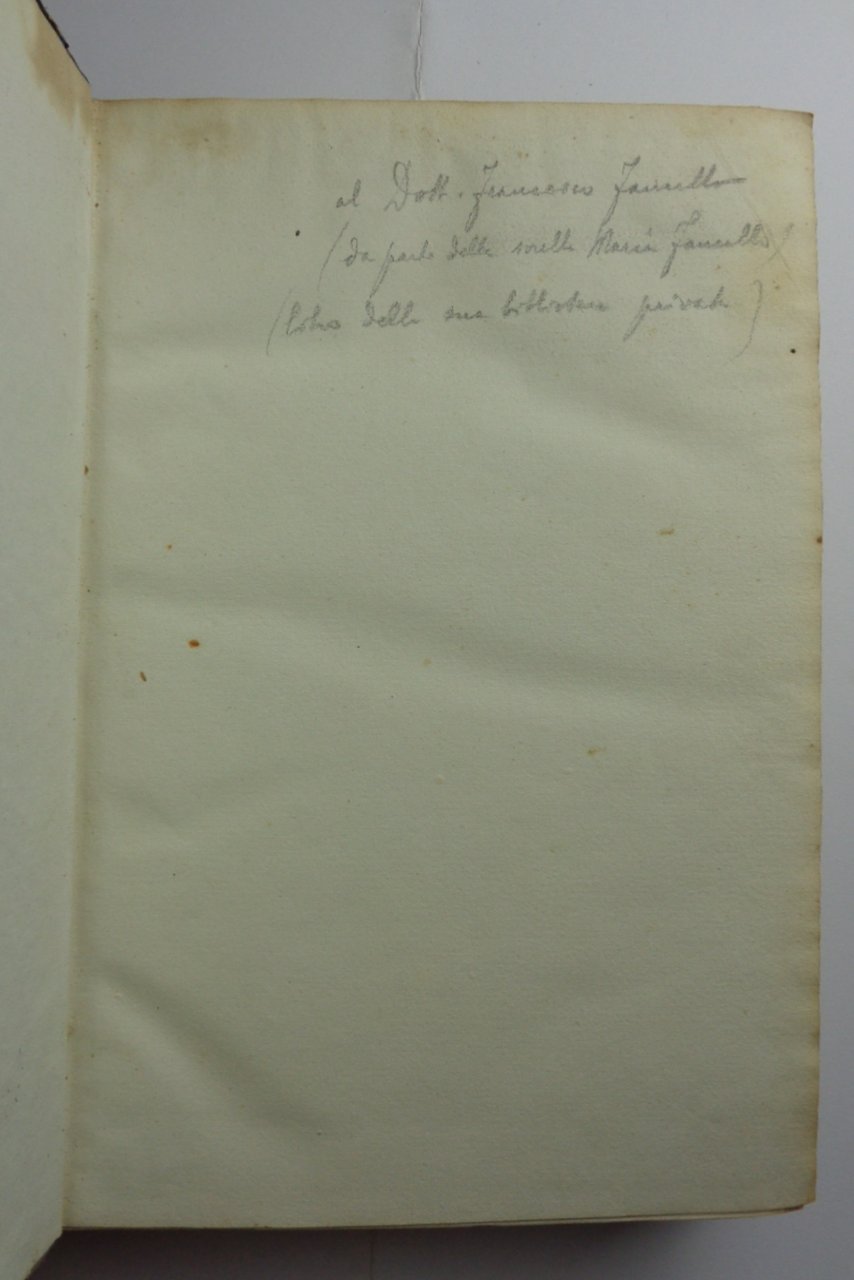 al Dott. Francesco
(da parte della sorella Maria
(libro della sua biblioteca privata)